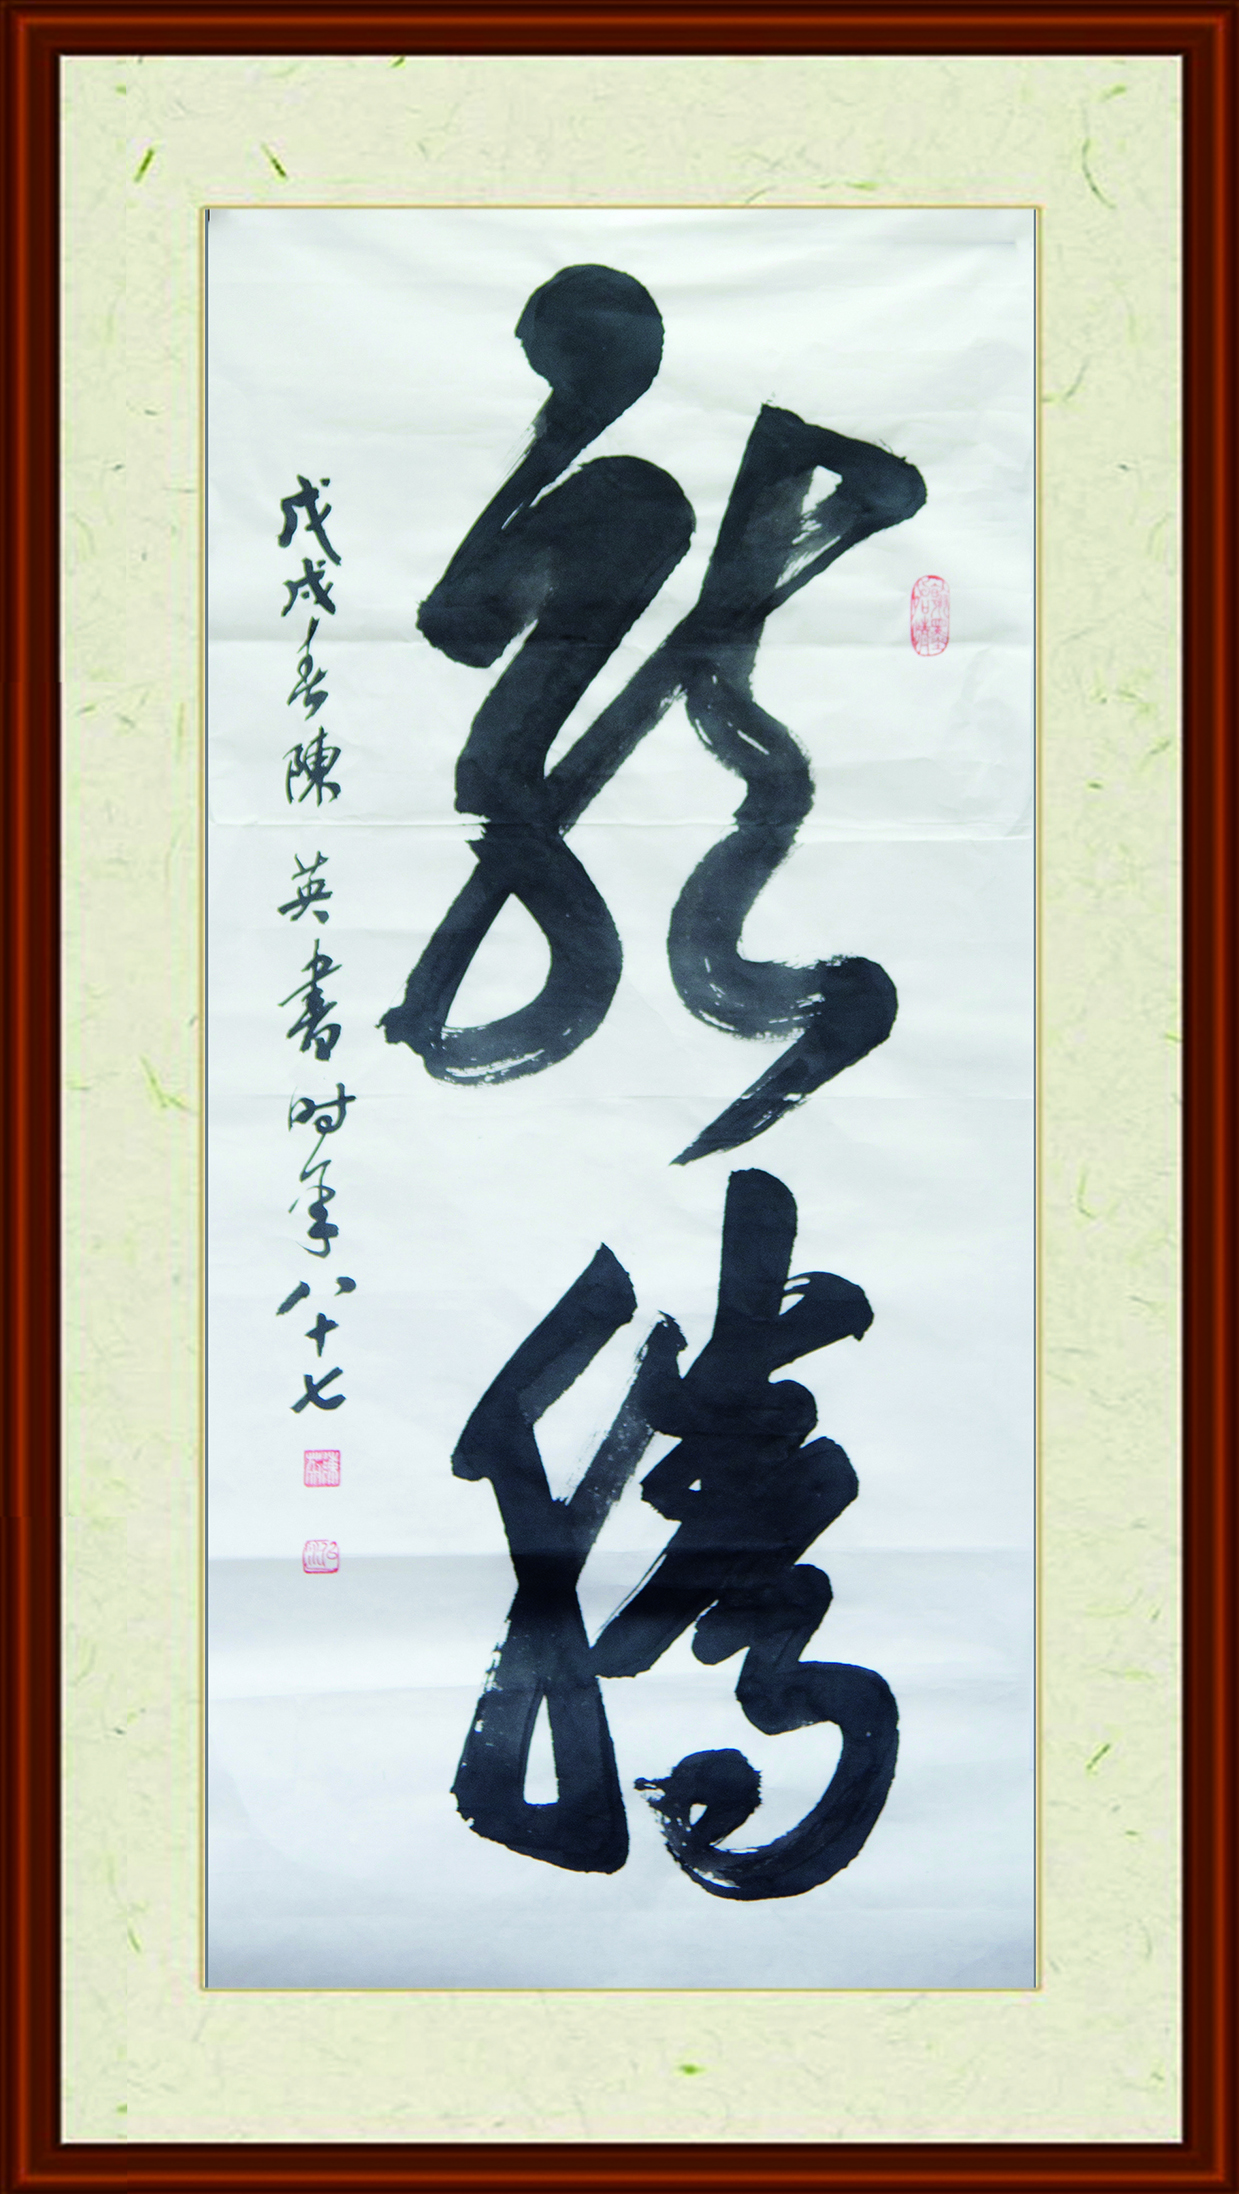 龍騰
戊戌春陳英書时年八十七